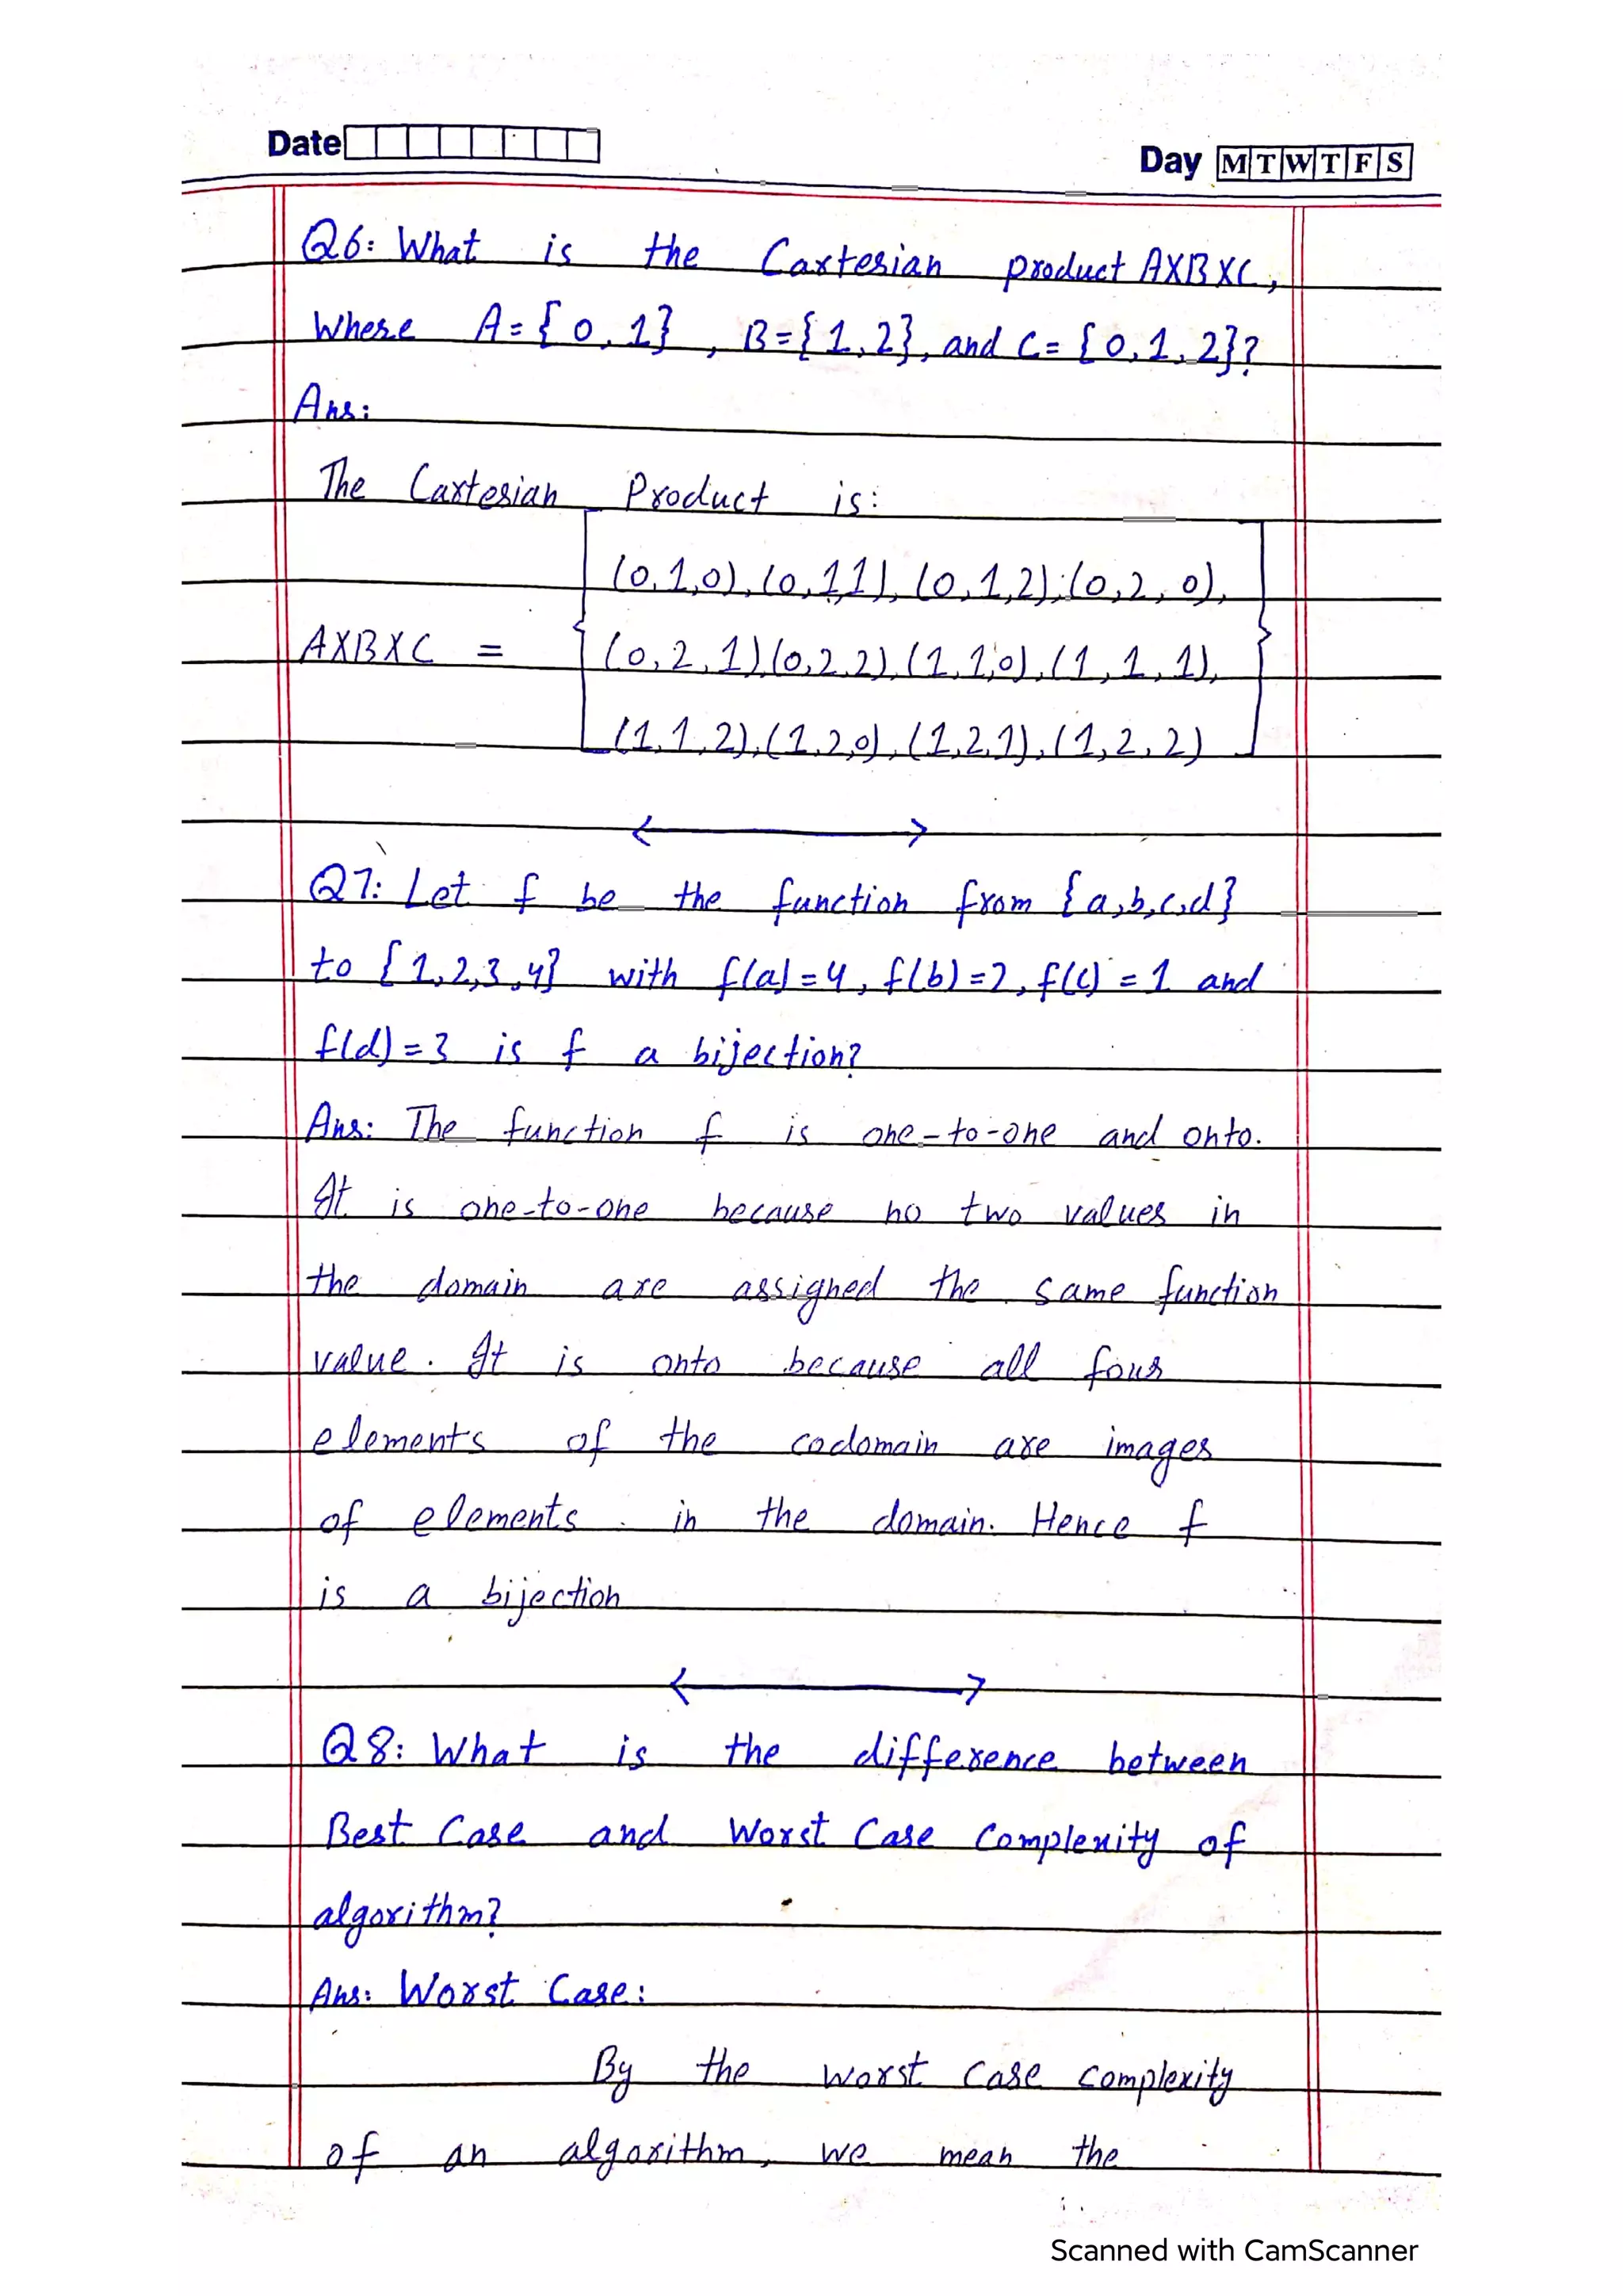 Date
Day M T W T F S
Q6: What is the Cartesian product AXBXC,
Where A = { 0, 1} , B = { 1, 2}, and C = { 0, 1, 2}?
Ans:
The Cartesian Product is:
(0,1,0), (0,1,1), (0,1,2), (0,2,0),
AXBXC = { (0,2,1), (0,2,2), (1,1,0), (1,1,1), }
(1,1,2), (1,2,0), (1,2,1), (1,2,2)
Q7: Let f be the function from {a,b,c,d}
to {1,2,3,4} with f(a)=4, f(b)=2, f(c)=1 and
f(d)=3 is f a bijection?
Ans: The function f is one-to-one and onto.
It is one-to-one because no two values in
the domain are assigned the same function
value. It is onto because all four
elements of the codomain are images
of elements in the domain. Hence f
is a bijection
Q8: What is the difference between
Best Case and Worst Case Complexity of
algorithm?
Ans: Worst Case:
By the worst case complexity
of an algorithm, we mean the
Scanned with CamScanner